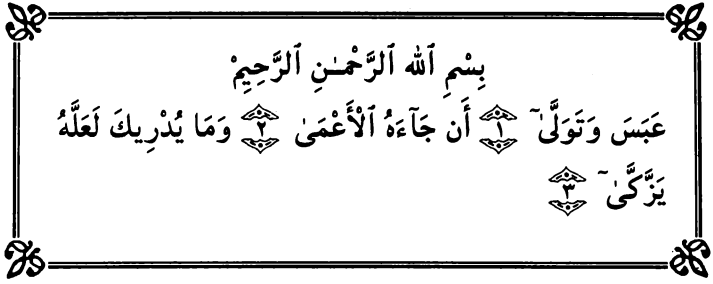 بِسْمِ ٱللَّهِ ٱلرَّحْمَـٰنِ ٱلرَّحِيمْ
عَبَسَ وَتَوَلَّىٰٓ ١ أَن جَآءَهُ ٱلْأَعْمَىٰ ٢ وَمَا يُدْرِيكَ لَعَلَّهُ
يَزَّكَّىٰٓ ٣